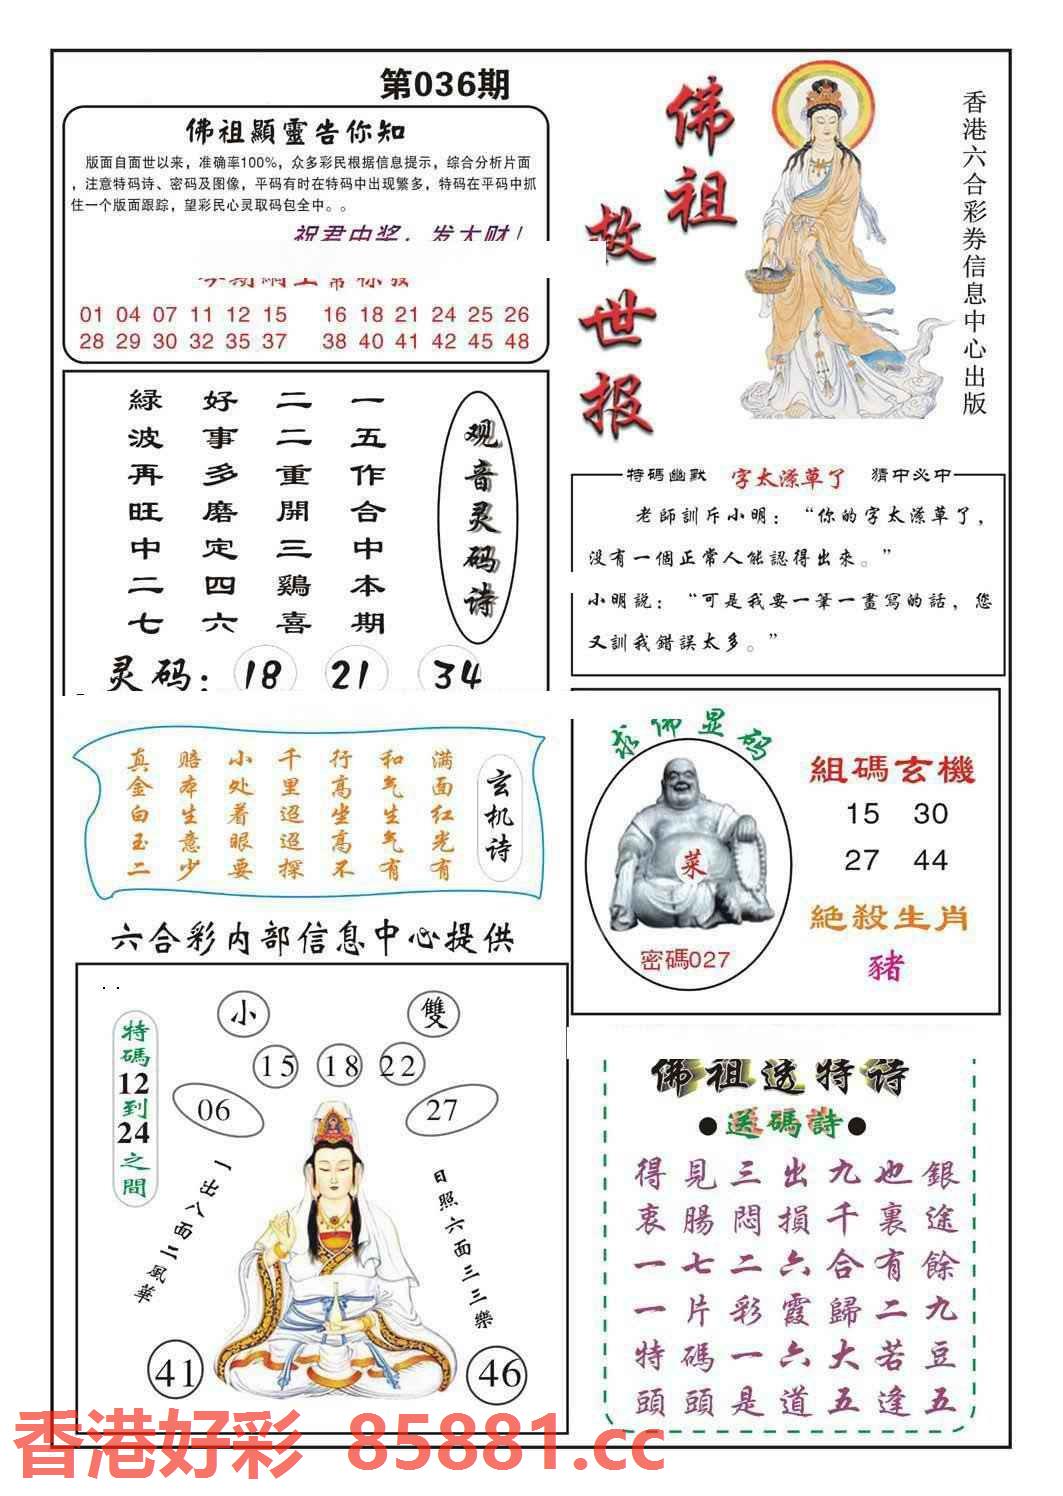 第036期
佛祖顯靈告你知
版面自面世以来，准确率100%，众多彩民根据信息提示，综合分析片面
，注意特码诗、密码及图像，平码有时在特码中出现繁多，特码在平码中抓
住一个版面跟踪，望彩民心灵取码包全中。。
祝君中奖，发大财！
01 04 07 11 12 15 16 18 21 24 25 26
28 29 30 32 35 37 38 40 41 42 45 48
佛祖
救世报
香港六合彩券信息中心出版
观音灵码诗
一五作合中本期
二二重開三鷄喜
好事多磨定四六
緑波再旺中二七
灵码：18 21 34
特碼幽默 字太潦草了 猜中必中
老師訓斥小明：“你的字太潦草了，
沒有一個正常人能認得出來。”
小明説：“可是我要一筆一畫寫的話，您
又訓我錯誤太多。”
玄机诗
满面红光有
和气生气有
行高坐高不
千里迢迢探
小处着眼要
赔本生意少
真金白玉二
求佛显码
菜
密碼027
組碼玄機
15 30
27 44
絶殺生肖
豬
六合彩内部信息中心提供
特碼12到24之間
小 雙
15 18 22
06 27
一出八面二風華
日照六面三三樂
41 46
佛祖透特诗
●送碼詩●
得見三出九也銀
衷腸悶損千裏途
一七二六合有餘
一片彩霞歸二九
特碼一六大若豆
頭頭是道五逢五
香港好彩 85881.cc